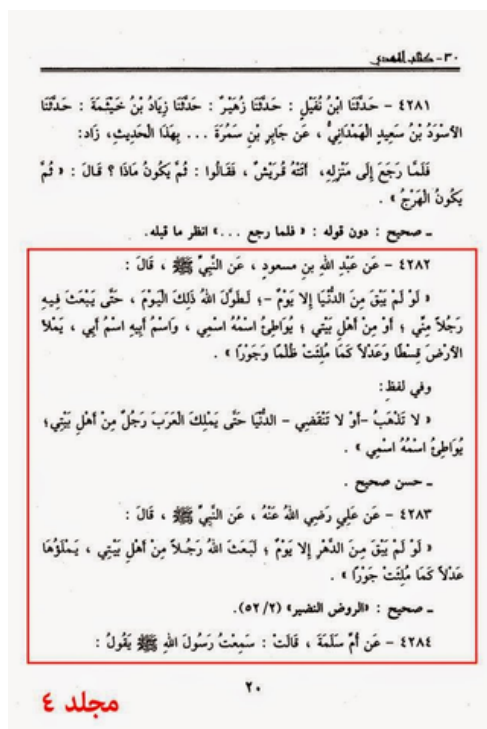 ٣٠- كتاب المهدي
٤٢٨١ - حَدَّثَنَا ابْنُ نُفَيْلٍ : حَدَّثَنَا زُهَيْرٌ : حَدَّثَنَا زِيَادُ بْنُ خَيْثَمَةَ : حَدَّثَنَا
الأَسْوَدُ بْنُ سَعِيدٍ الْهَمْدَانِيُّ ، عَن جَابِرِ بْنِ سَمُرَةَ ... بِهَذَا الْحَدِيثِ، زَادَ:
فَلَمَّا رَجَعَ إِلَى مَنْزِلِهِ، أَتَتْهُ قُرَيْشٌ ، فَقَالُوا : ثُمَّ يَكُونُ مَاذَا ؟ قَالَ : « ثُمَّ
يَكُونُ الْهَرْجُ » .
ـ صحيح : دون قوله : « فلما رجع ...» انظر ما قبله.
٤٢٨٢ - عَن عَبْدِ اللهِ بنِ مسعودٍ ، عَن النَّبِيِّ ﷺ ، قَالَ :
« لَوْ لَمْ يَبْقَ مِنَ الدُّنْيَا إِلا يَوْمٌ -؛ لَطَوَّلَ اللهُ ذَلِكَ الْيَوْمَ ، حَتَّى يَبْعَثَ فِيهِ
رَجُلاً مِنِّي ؛ أَوْ مِنْ أَهْلِ بَيْتِي ؛ يُوَاطِئُ اسْمُهُ اسْمِي ، وَاسْمُ أَبِيهِ اسْمُ أَبِي ، يَمْلأُ
الأَرْضَ قِسْطًا وَعَدْلاً كَمَا مُلِئَتْ ظُلْمًا وَجَوْرًا » .
وفي لفظ:
« لا تَذْهَبُ -أَوْ لا تَنْقَضِي - الدُّنْيَا حَتَّى يَمْلِكَ الْعَرَبَ رَجُلٌ مِنْ أَهْلِ بَيْتِي؛
يُوَاطِئُ اسْمُهُ اسْمِي » .
ـ حسن صحيح .
٤٢٨٣ - عَن عَلِي رَضِي اللهُ عَنْهُ ، عَن النَّبِيِّ ﷺ ، قَالَ :
« لَوْ لَمْ يَبْقَ مِنَ الدَّهْرِ إِلا يَوْمٌ ؛ لَبَعَثَ اللهُ رَجُلاً مِنْ أَهْلِ بَيْتِي ، يَمْلَؤُهَا
عَدْلاً كَمَا مُلِئَتْ جَوْرًا » .
ـ صحيح : «الروض النضير» (٢/ ٥٢).
٤٢٨٤ - عَن أُمِّ سَلَمَةَ ، قَالَتْ : سَمِعْتُ رَسُولَ اللهِ ﷺ يَقُولُ :
٢٠
مجلد ٤